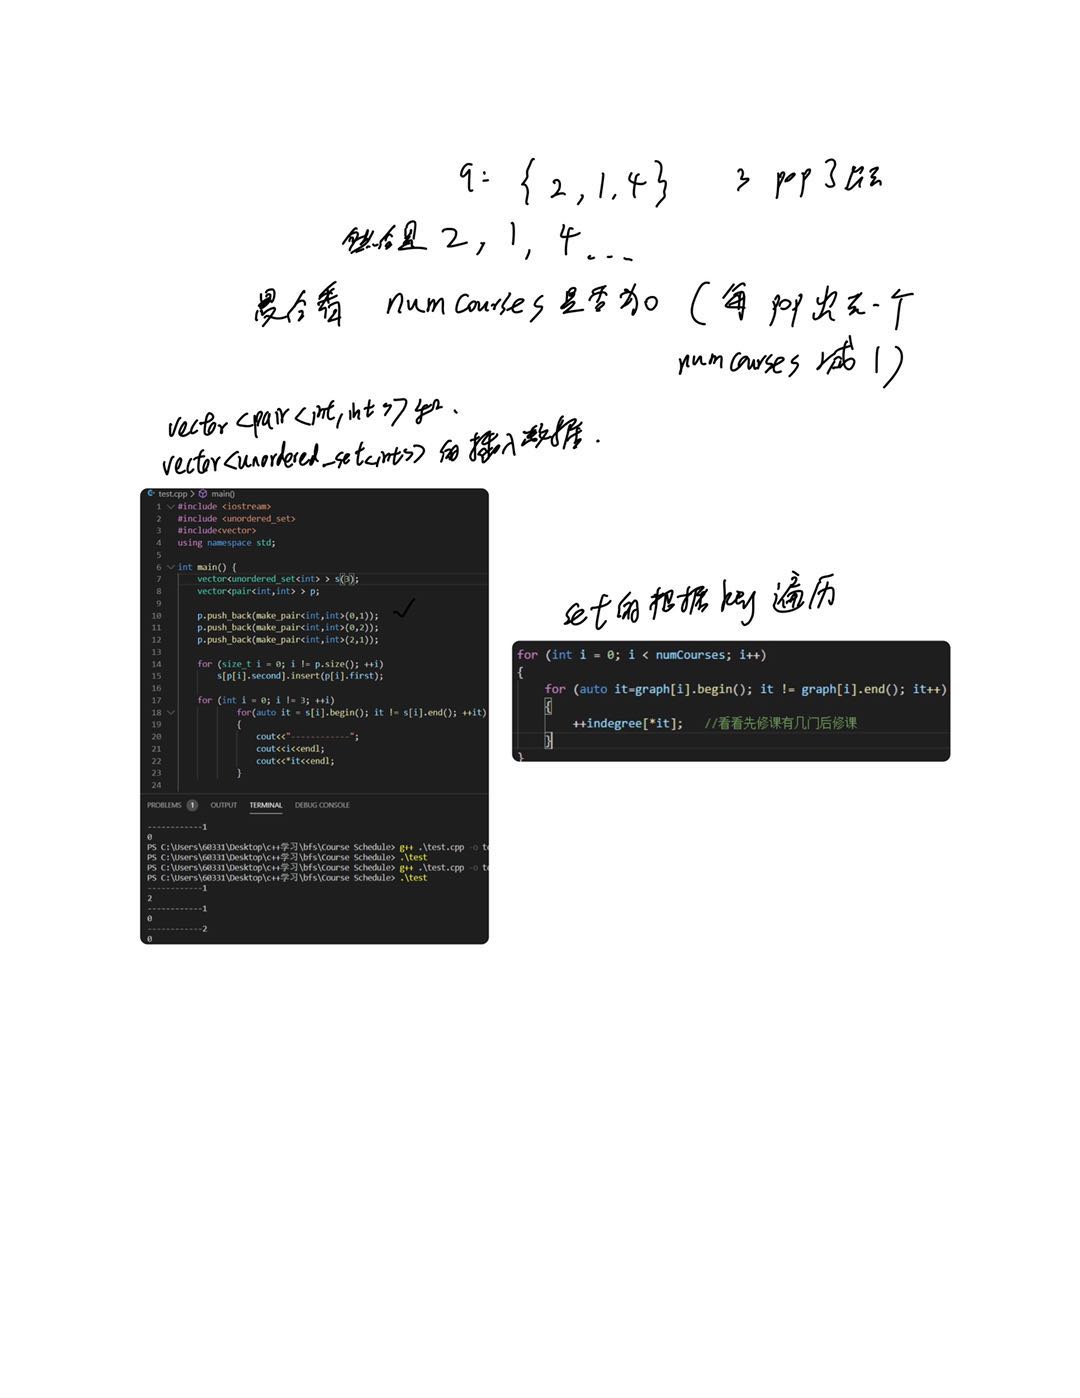 q: { 2, 1, 4 } 3 pop 了后
然后是 2, 1, 4 ...
最后看 numcourses 是否为0 (每 pop 出去一个
numcourses 减 1)
vector<pair<int,int>>和.
vector<unordered_set<int>>的插入数据.
test.cpp > main()
1 #include <iostream>
2 #include <unordered_set>
3 #include<vector>
4 using namespace std;
5
6 int main() {
7 vector<unordered_set<int> > s(3);
8 vector<pair<int,int> > p;
9
10 p.push_back(make_pair<int,int>(0,1));
11 p.push_back(make_pair<int,int>(0,2));
12 p.push_back(make_pair<int,int>(2,1));
13
14 for (size_t i = 0; i != p.size(); ++i)
15 s[p[i].second].insert(p[i].first);
16
17 for (int i = 0; i != 3; ++i)
18 for(auto it = s[i].begin(); it != s[i].end(); ++it)
19 {
20 cout<<"------------";
21 cout<<i<<endl;
22 cout<<*it<<endl;
23 }
24
PROBLEMS 1 OUTPUT TERMINAL DEBUG CONSOLE
------------1
0
PS C:\Users\60331\Desktop\c++学习\bfs\Course Schedule> g++ .\test.cpp -o te
PS C:\Users\60331\Desktop\c++学习\bfs\Course Schedule> .\test
PS C:\Users\60331\Desktop\c++学习\bfs\Course Schedule> g++ .\test.cpp -o te
PS C:\Users\60331\Desktop\c++学习\bfs\Course Schedule> .\test
------------1
2
------------1
0
------------2
0
set的根据key遍历
for (int i = 0; i < numCourses; i++)
{
for (auto it=graph[i].begin(); it != graph[i].end(); it++)
{
++indegree[*it]; //看看先修课有几门后修课
}
}